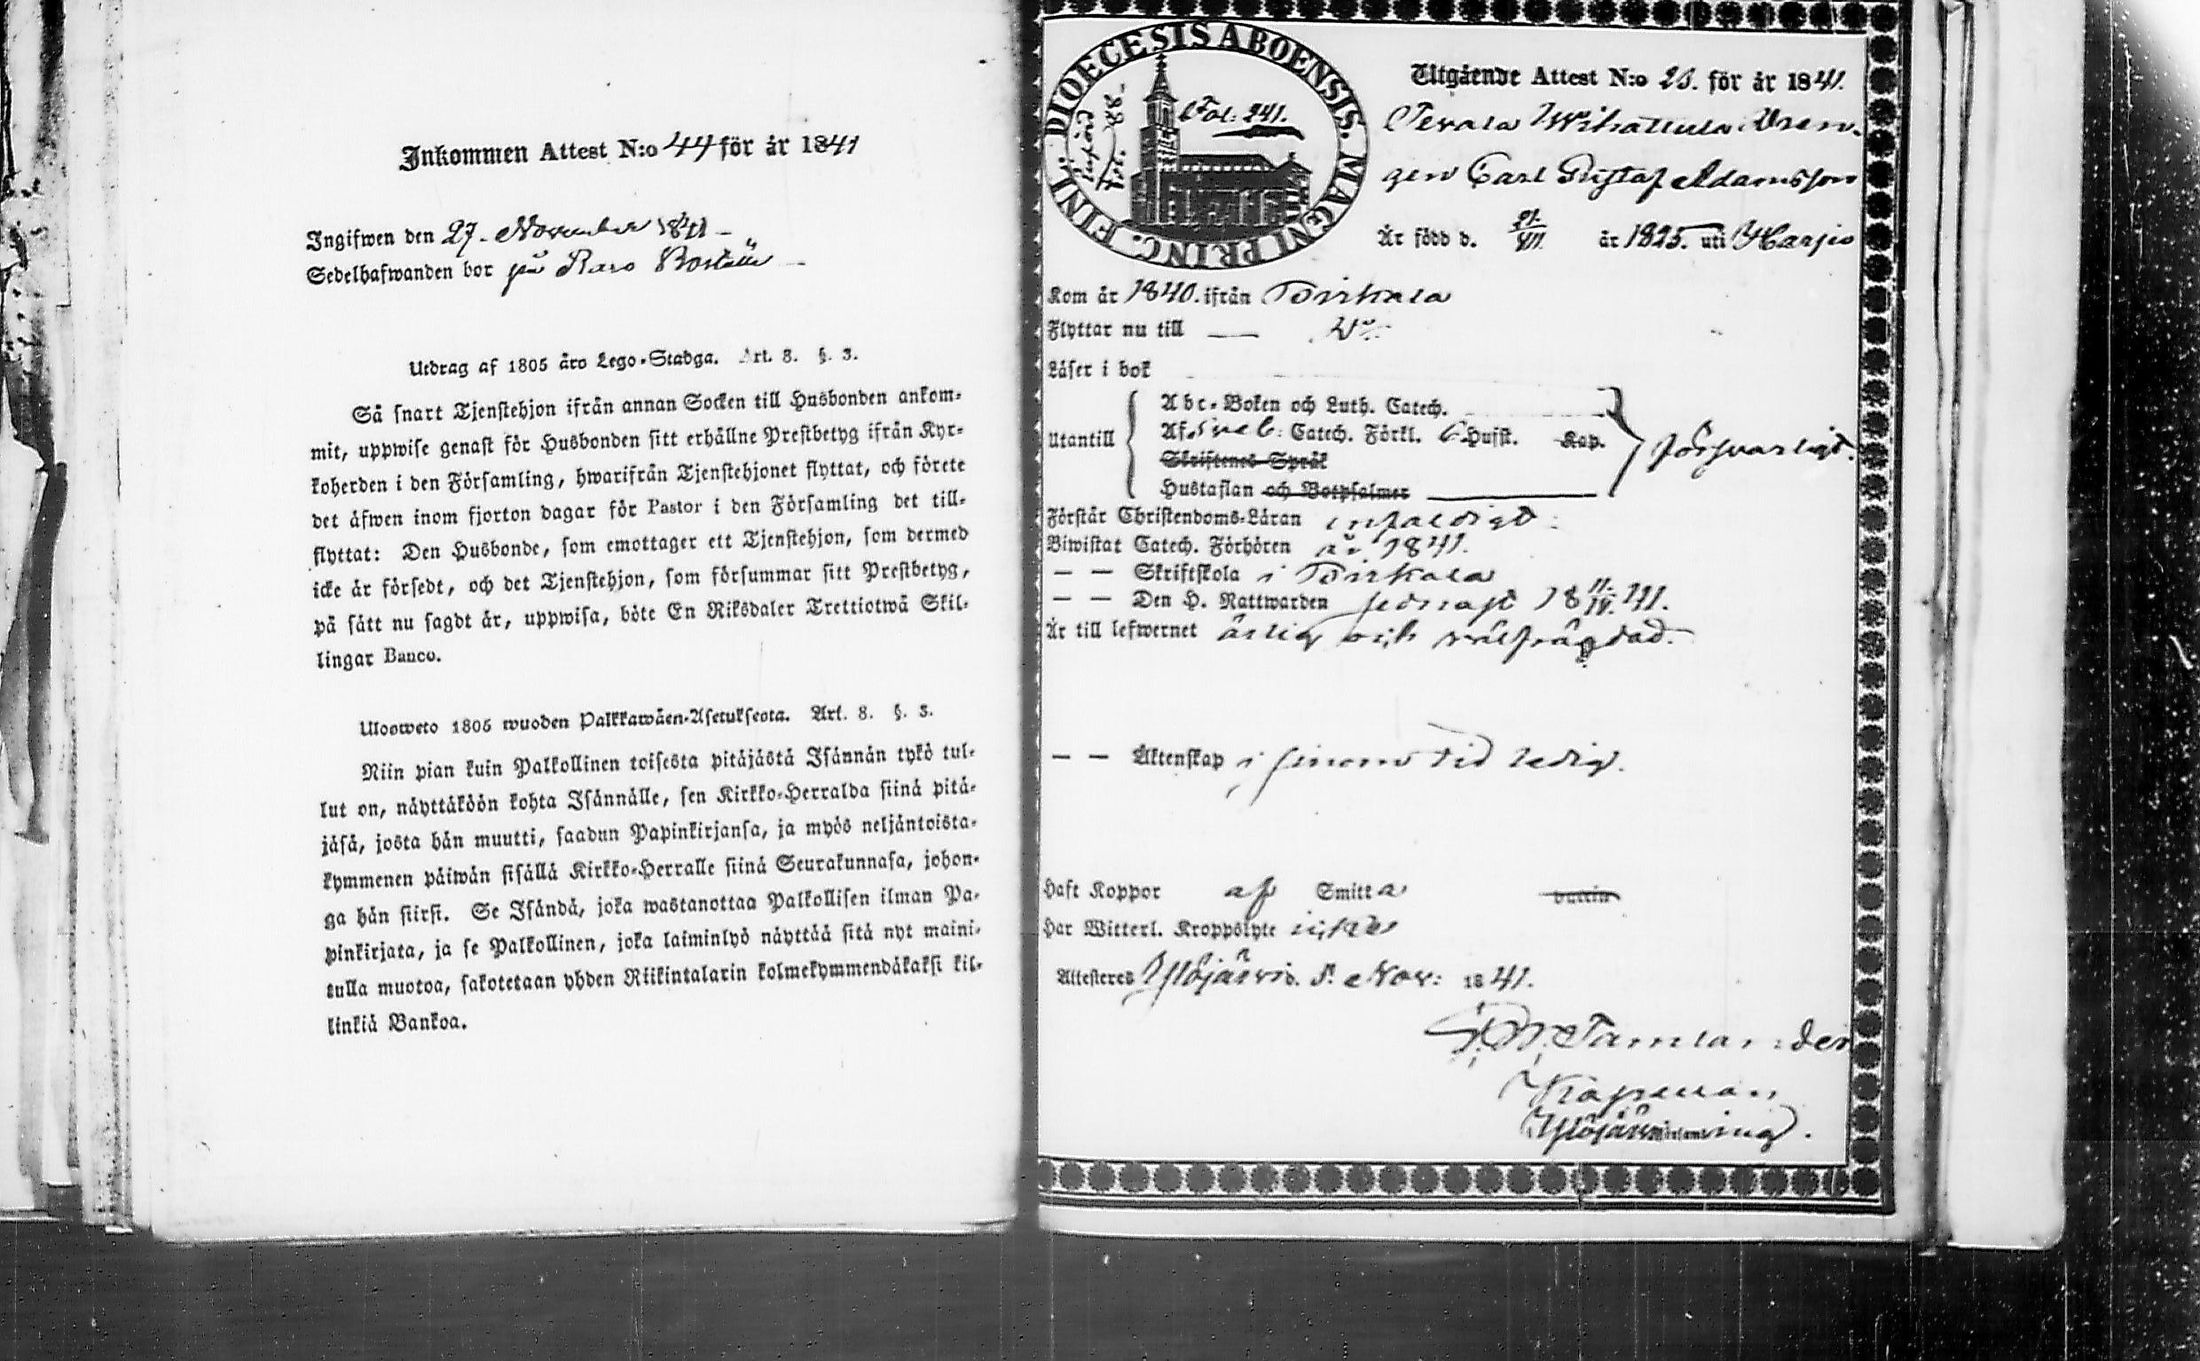 Inkommen Attest N:o 44 för år 1841
Ingifwen den 27. November 1841 –
Sedelhafwanden bor på Raro Boställe –
Utdrag af 1805 års Lego-Stadga. Art. 8. §. 3.
Så snart Tjenstehjon ifrån annan Socken till Husbonden ankom-
mit, uppwise genast för Husbonden sitt erhållne Prestbetyg ifrån Kyr-
koherden i den Församling, hwarifrån Tjenstehjonet flyttat, och förete
det äfwen inom fjorton dagar för Pastor i den Församling det till-
flyttat: Den Husbonde, som emottager ett Tjenstehjon, som dermed
icke är försedt, och det Tjenstehjon, som försummar sitt Prestbetyg,
på sätt nu sagdt är, uppwisa, böte En Riksdaler Trettiotwå Skil-
lingar Banco.
Ulosweto 1805 wuoden Palkkawäen-Asetuksesta. Art. 8. §. 3.
Niin pian kuin Palkollinen toisesta pitäjästä Isännän tykö tul-
lut on, näyttäköön kohta Isännälle, sen Kirkko-Herralda siinä pitä-
jäsä, josta hän muutti, saadun Papinkirjansa, ja myös neljäntoista-
kymmenen päiwän sisällä Kirkko-Herralle siinä Seurakunnasa, johon-
ga hän siirsi. Se Isändä, joka wastanottaa Palkollisen ilman Pa-
pinkirjata, ja se Palkollinen, joka laiminlyö näyttää sitä nyt maini-
tulla muotoa, sakotetaan yhden Riikintalarin kolmekymmendäkaksi kil-
linkiä Bankoa.
DIOECESIS ABOENSIS. MAGNI PRINC. FINL.
Fol: 241.
Utgående Attest N:o 25. för år 1841.
Dren-
gen Carl Gustaf Adamsson
Är född d. 21/VII år 1825. uti Harju
Kom år 1840. ifrån Birkala
Flyttar nu till —
Läser i bok
Abc-Boken och Luth. Catech.
Utantill Af Sveb: Catech. Förkl. 6 Husst. Kap. försvarligt.
Skriftenes Språk
Hustaflan och Botpsalmer
Förstår Christendoms-Läran enfaldigt:
Biwistat Catech. Förhören år 1841.
— — Skriftskola i Birkala
— — Den H. Nattwarden sednast 18 11/IV 41.
Är till lefwernet ärlig och välfrägdad.
— — Äktenskap i sinom tid ledig.
Haft Koppor af Smitta vaccin
Har Witterl. Kroppslyte icke
Attesteres Ylöjärvi d. 5. Nov: 1841.
Tamlander
Kapellan
Ylöjärvi